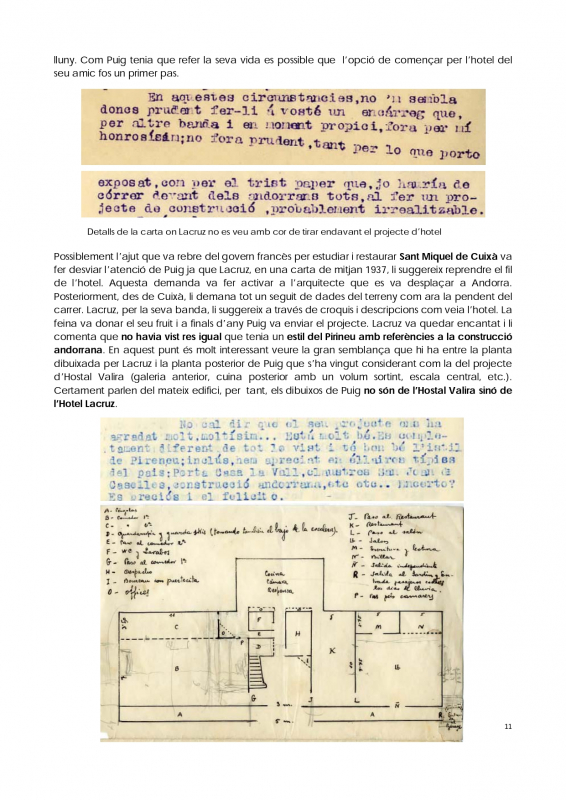 lluny. Com Puig tenia que refer la seva vida es possible que l'opció de començar per l'hotel del
seu amic fos un primer pas.
En aquestes circunstancies,no 'm sembla
doncs prudent fer-li á vosté un encárreg que,
per altre banda i en moment propici,fora per mí
honrosísim;no fora prudent,tant per lo que porto
exposat,com per el trist paper que,jo hauría de
córrer devant dels andorrans tots,al fer un pro-
jecte de construcció ,probablement irrealitzable.
Detalls de la carta on Lacruz no es veu amb cor de tirar endavant el projecte d'hotel
Possiblement l'ajut que va rebre del govern francès per estudiar i restaurar Sant Miquel de Cuixà va
fer desviar l'atenció de Puig ja que Lacruz, en una carta de mitjan 1937, li suggereix reprendre el fil
de l'hotel. Aquesta demanda va fer activar a l'arquitecte que es va desplaçar a Andorra.
Posteriorment, des de Cuixà, li demana tot un seguit de dades del terreny com ara la pendent del
carrer. Lacruz, per la seva banda, li suggereix a través de croquis i descripcions com veia l'hotel. La
feina va donar el seu fruit i a finals d'any Puig va enviar el projecte. Lacruz va quedar encantat i li
comenta que no havia vist res igual que tenia un estil del Pirineu amb referències a la construcció
andorrana. En aquest punt és molt interessant veure la gran semblança que hi ha entre la planta
dibuixada per Lacruz i la planta posterior de Puig que s'ha vingut considerant com la del projecte
d'Hostal Valira (galeria anterior, cuina posterior amb un volum sortint, escala central, etc.).
Certament parlen del mateix edifici, per tant, els dibuixos de Puig no són de l'Hostal Valira sinó de
l'Hotel Lacruz.
No cal dir que el seu projecte ens ha
agradat molt,moltísim... Está molt bé.Es comple-
tament diferent de tot lo vist i té bon bé l'istil
de Pireneu;inclús,hem apreciat en éll aires típics
del pais;Porta Casa la Vall,claustres San Joan de
Caselles,construcció andorrana,etc etc.. Encerto?
Es preciós i el felicito.
B - Comedor 1ª
C - " 2ª
D - Guardarropía y guarda skis (tomando también el bajo de la escalera).
E - Paso al comedor 2ª
F - WC y Lavabos
G - Paso al comedor 1ª
H - Despacho
I - Bureau con puertecita
O - Offices
J - Paso al Restaurant
K - Restaurant
L - Paso al salón
LL - Salon
M - Escritura y lectura
N - Billar
Ñ - Salida independiente
R - Salida al Jardín y
los días de lluvia.
Cocina
Cámara
Despensa
C
F
E
D
H
K
M
N
B
LL
G
J
L
Ñ
3 m.
A
A
R
5 m.
11